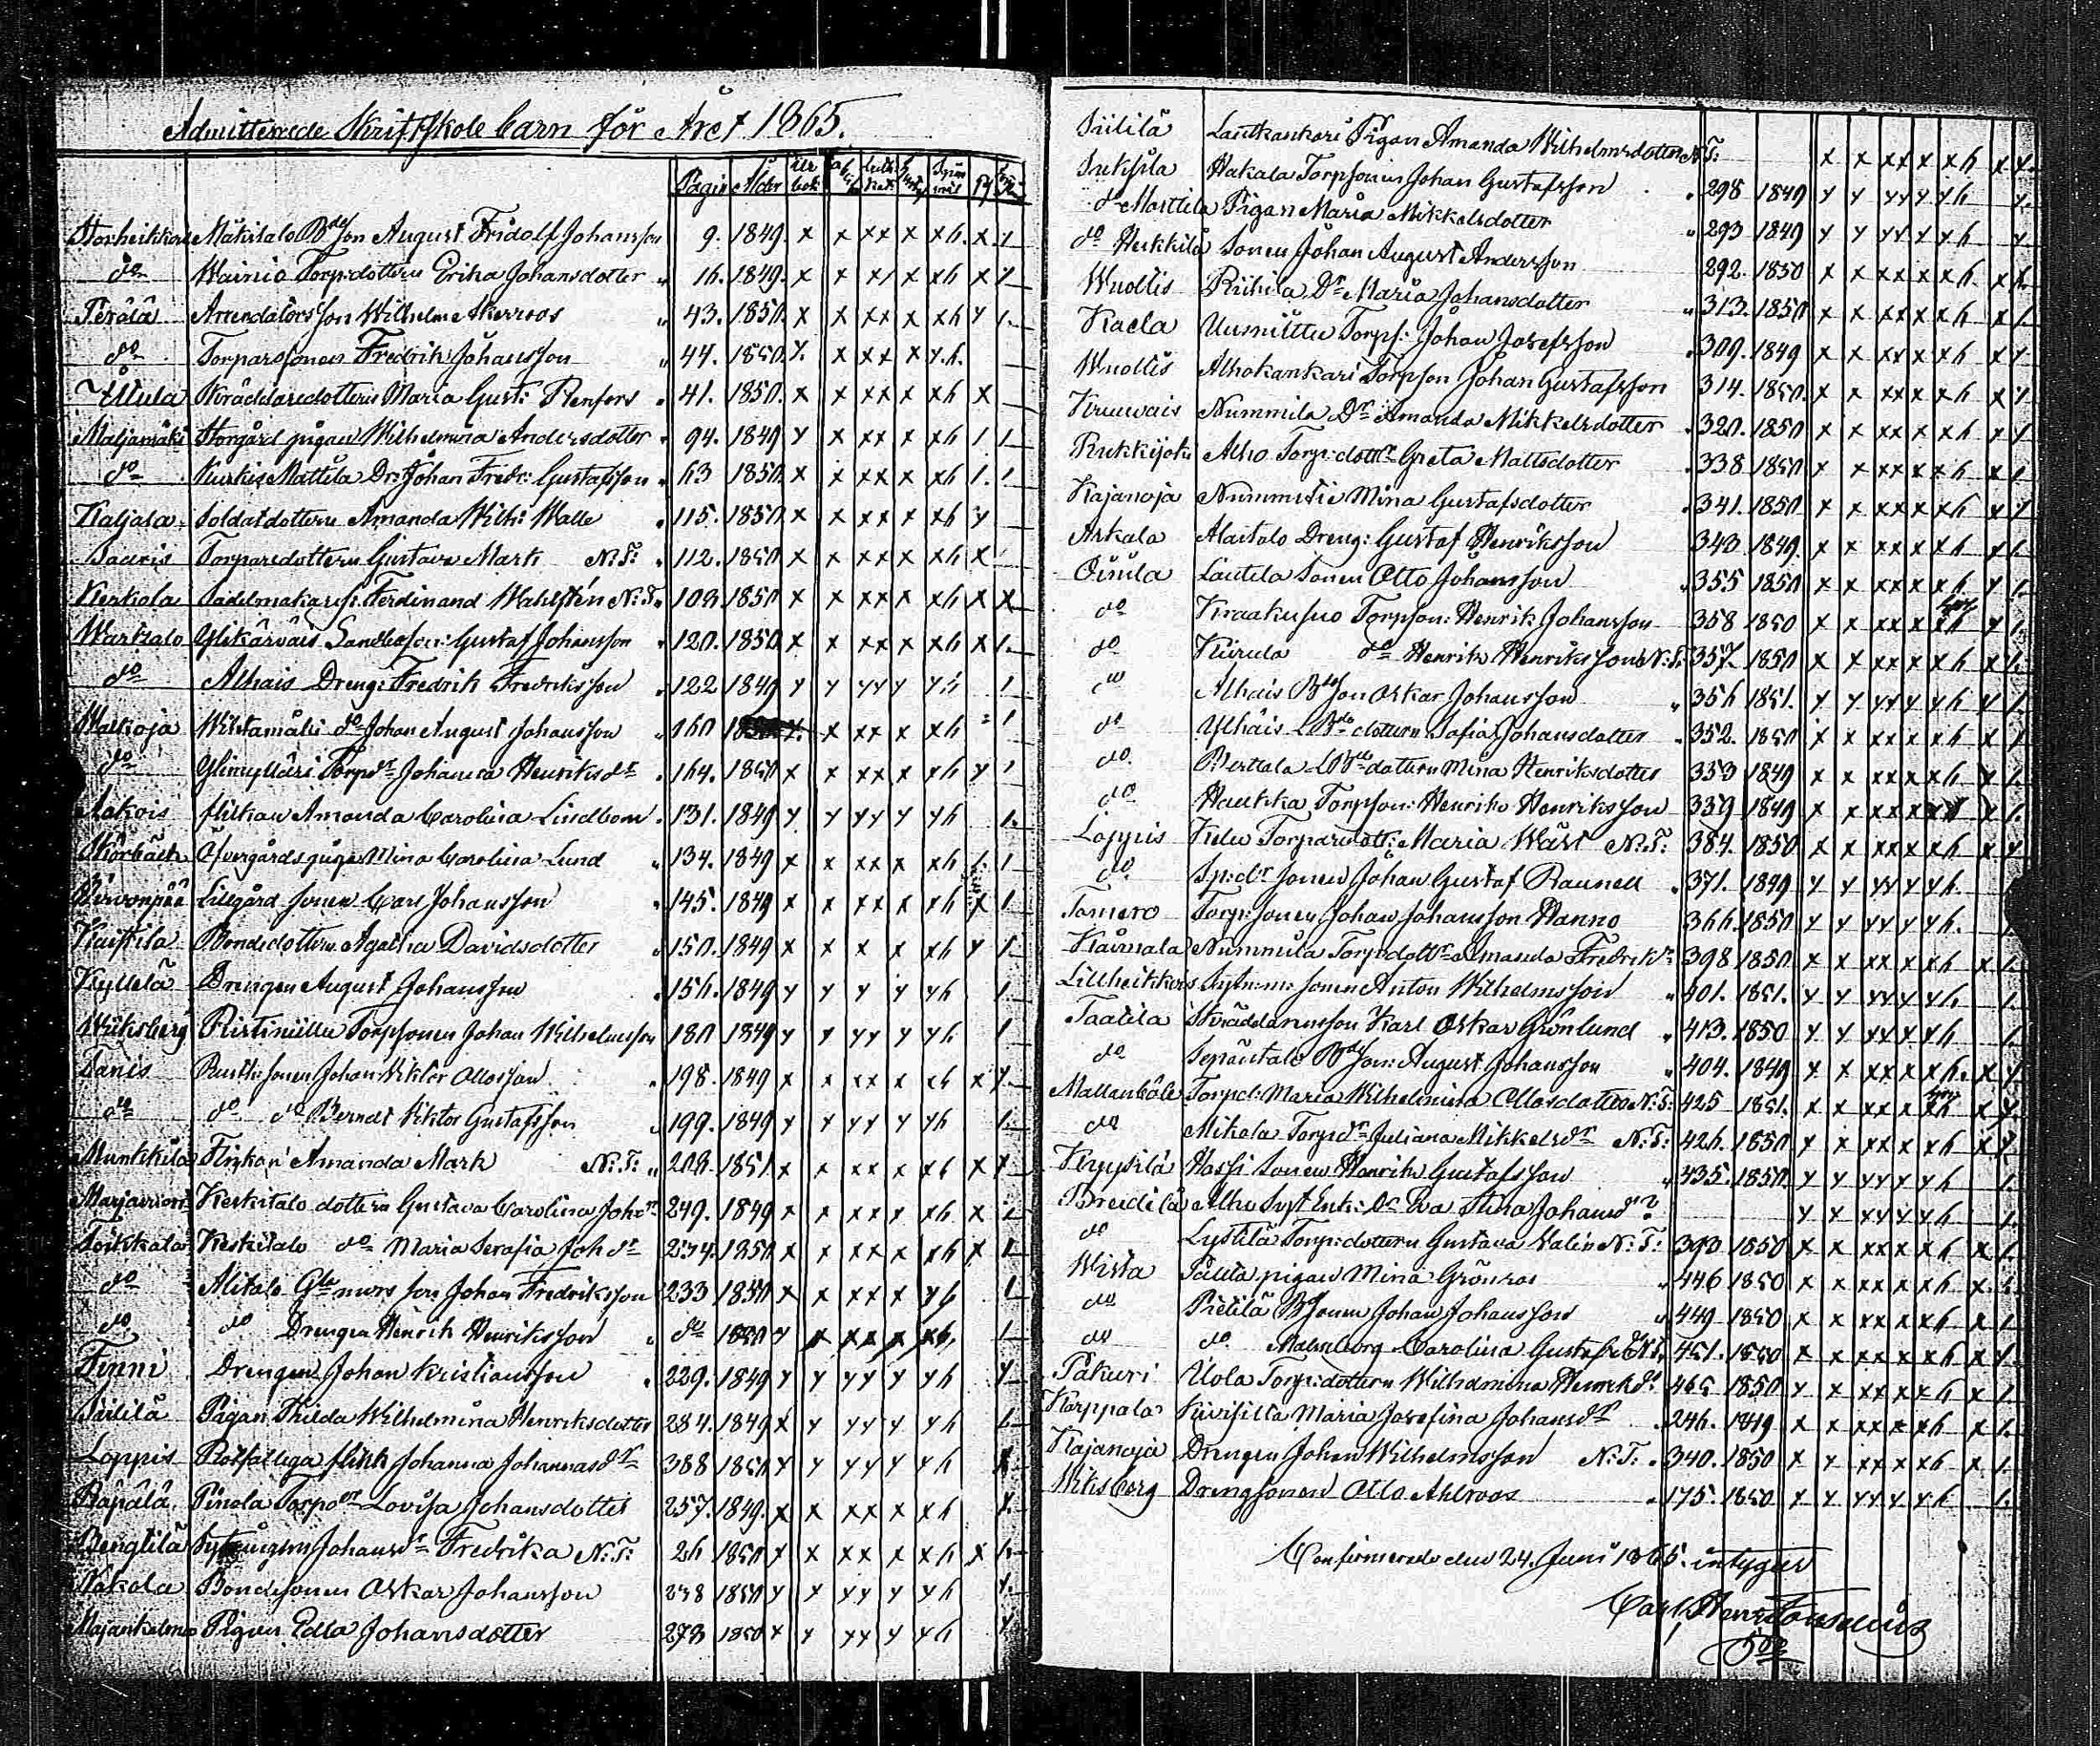 Admitterade Skriftskole barn för Året 1865.
Pagin Ålder
Storheikkois Mäkitalo Bdeson August Fridolf Johansson 9. 1849. x x xx x xh. x 1
do Wainio Torp:dottern Erika Johansdotter 16. 1849. x x x/ x xh x 1
Perälä Arrendators son Wilhelm Åkerroos 43. 1850. x x xx x xh y 1.
do Torparsonen Fredrik Johansson 44. 1850. y. x xx x y.h.
Uttula Skräddaredottern Maria Gust: Renfors 41. 1850. x x xx x xh x
Maljamäki Storgård pigan Wilhelmina Andersdotter 94. 1849 y x xx x xh 1 1
do Kurkis Mattila Dr: Johan Fredr: Gustafsson 63 1850. x x xx x xh 1. 1.
Kaljala Soldatdottern Amanda Wilh: Walle 115. 1850. x x xx x xh y
Sauris Torparedottern Gustava Mark N:T: 112. 1850 x x xx x xh x
Kerkola Sadelmakares: Ferdinand Wahlstén N:T. 103. 1850 x x xx x xh x x
Wartsalo Ylikärväis Landboson: Gustaf Johansson 120. 1850 x x xx x xh x 1.
do Alhais Dreng: Fredrik Fredriksson 122 1849 y y yy y yh 1
Walkoja Wihtamäki do Johan August Johansson 160 x xx x xh 1
do Ylimylläri Torpdr Johanna Henriksdr 164. 1850 x x xx x xh y 1
Aakois flickan Amanda Carolina Lindbom 131. 1849 y y yy y yh 1.
Skörbäck Öfvergårds pigan Mina Carolina Lund 134. 1849 x x xx x xh 1. 1
Lillgård sonen Carl Johansson 145. 1849 x x xx x xh x 1.
Kaitila Bondedottern Agatha Davidsdotter 150. 1849 x x x x xh y 1.
Kyllelä Drengen August Johansson 156. 1849 y y y y yh 1
Wiksberg Ristimällu Torpsonen Johan Wilhelmsson 180 1849 y y yy y yh 1
Tanis Rusth: sonen Johan Viktor Ottosson 198. 1849 x x xx x xh x y.
do do do Berndt Viktor Gustafsson 199. 1849 y y yy y yh 1.
Munkkila Flickan Amanda Mark N:T: 208. 1851. x x xx x xh x y
Marjavuori Keskitalo dottern Gustava Carolina Johdr 249. 1849 x x xx x xh x
Toikkala Keskitalo do Maria Serafia Johdr 234. 1850 x x xx x xh x 1.
do Alitalo Gle mors son Johan Fredriksson 233 1850 x x xx x yh 1.
do do Drengen Henrik Henriksson do 1850 y x xx x xh, 1
Finni Drengen Johan Kristiansson 229. 1849 y y yy y yh y
Siililä Pigan Thilda Wilhelmina Henriksdotter 284. 1849 x y yy y yh 1.
Loppis Rotfattiga flick Johanna Johannasdr 388 1850 y y yy y yh x
Räpälä Pinola Torpdr Lovisa Johansdotter 257. 1849. x x xx x xh y.
Bengtilä Johansdr Fredrika N:T: 26 1850 x x xx x xh x 1.
Nakola Bondesonen Oskar Johansson 238 1850 y y yy y yh y.
Majankulma Pigan Edla Johansdotter 273 1850 x y yy y yh y
Siililä Lautkankari Pigan Amanda Wilhelmsdotter N.T: x x xx x xh x x.
Suksila Hakala Torpsonen Johan Gustafsson 298 1849 y y yy y yh y.
do Marttila Pigan Maria Mikkelsdotter 293 1849 y y yy y yh y
do Heikkilä Sonen Johan August Andersson 292. 1850 x x xx x xh. x x.
Wuoltis Riihila Dr Maria Johansdotter 313. 1850 x x xx x xh x 1.
Kaela Uusmittu Torps: Johan Josefsson 309. 1849 x x xx x xh x y.
Wuoltis Alhokankari Torpson Johan Gustafsson 314. 1850. x x xx x xh x y
Kruuvais Nummila Dr Amanda Mikkelsdotter 320. 1850 x x xx x xh x y
Rukkijoki Alho Torp:dottr Greta Mattsdotter 338 1850 x x xx x xh x 1
Kajanoja Nummitie Mina Gustafsdotter 341. 1850 x x xx x xh x y
Askala Alaitalo Dreng: Gustaf Henriksson 343 1849. x x xx x xh x 1.
Oinila Lautela Sonen Otto Johansson 355 1850 x x xx x xh y 1.
do Kraakusuo Torpson: Henrik Johansson 358 1850 x x xx x xh y 1.
do Kiirula do Henrik Henriksson N:T: 357. 1850 x x xx x xh x 1.
do Alhais Bdeson Oskar Johansson 356 1851. y y yy y yh y 1
do Ylhäis Bde dottern Sofia Johansdotter 352. 1850 x x xx x xh x y
do. Perttala Bde dottern Mina Henriksdotter 353 1849 x x xx x xh x 1.
do Haukka Torpson: Henrik Henriksson 359 1849 x x xx x xh y 1.
Loppis Torparedott: Maria Wärt N:T: 384. 1850 x x xx x xh x y
do Sp:dr sonen Johan Gustaf Raunell 371. 1849 y y yy y yh.
Tamero Torp: sonen Johan Johansson Hanno 366. 1850 y y yy y yh. 1.
Kärmala Nummila Torpdottr Amanda Fredrikdr 398 1850 x x xx x xh x 1.
Lillheikkois Sytn:m: sonen Anton Wilhelmsson 401. 1851. y y yy y yh. 1.
Taatila Skräddaresson Karl Oskar Grönlund 413. 1850 y y yy y yh 1.
do Sepäntalo Bdeson: August Johansson 404. 1849 x x xx x xh. x y.
Mattanböle Torpd: Maria Wilhelmina Ottosdotter N:T: 425 1851. x x xx x xh x y.
do Mikola Torpdr Juliana Mikkelsdr N:T: 426. 1850 y x xx x yh x y
Kyysilä Hossi Sonen Henrik Gustafsson 435. 1850. y y yy y yh 1.
Breidilä Alho Syt Enk: Dr Eva Stina Johansdr ? y x xy y yh 1.
do Lystilä Torp:dottern Gustava Valin N:T: 393 1850 x x xx x xh x 1.
Wista pigan Mina Grönroos 446 1850 x x xx x xh x.
do Pietilä Bsonen Johan Johansson 449 1850 x x xx x xh x 1.
do do. Malmborg Carolina Gustafsdr N.T. 451. 1850 x x xx x xh x y.
Pakuri Uola Torp:dottern Wilhelmina Henrikdr 465 1850 y x xx x xh x 1.
Karppala Kivisilla Maria Josefina Johansdr 246. 1849 x x xx x xh x 1.
Kajanoja Drengen Johan Wilhelmsson N:T: 340. 1850 x y xx x xh x 1.
Wiksberg Drengsonen Otto Ahlroos 175. 1850 y y yy y yh 1.
Confirmerade den 24. Juni 1865. intygar
Carl Henr